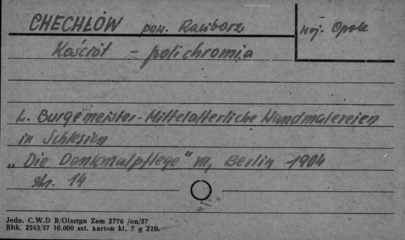 CHECHŁÓW pow. Racibórz
woj. Opole
Kościół - polichromia
L. Burgemeister - Mittelalterliche Wandmalereien
in Schlesien
"Die Denkmalpflege" VI, Berlin 1904
str. 14
Jedn. C.W.D B/Olsztyn Zam 2776 /on/57
Bltk. 2563/57 10.000 szt. karton kl. 7 g 220.